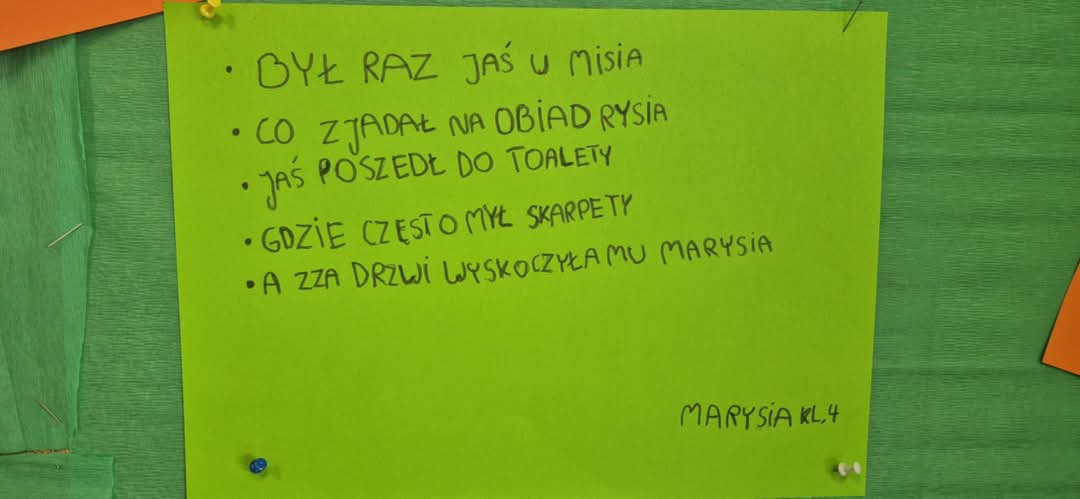 • BYŁ RAZ JAŚ U MISIA
• CO ZJADAŁ NA OBIAD RYSIA
• JAŚ POSZEDŁ DO TOALETY
• GDZIE CZĘSTO MYŁ SKARPETY
• A ZZA DRZWI WYSKOCZYŁA MU MARYSIA
MARYSIA KL.4